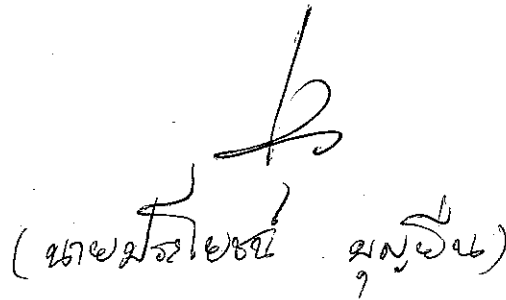 (นายประโยชน์ บุญยืน)